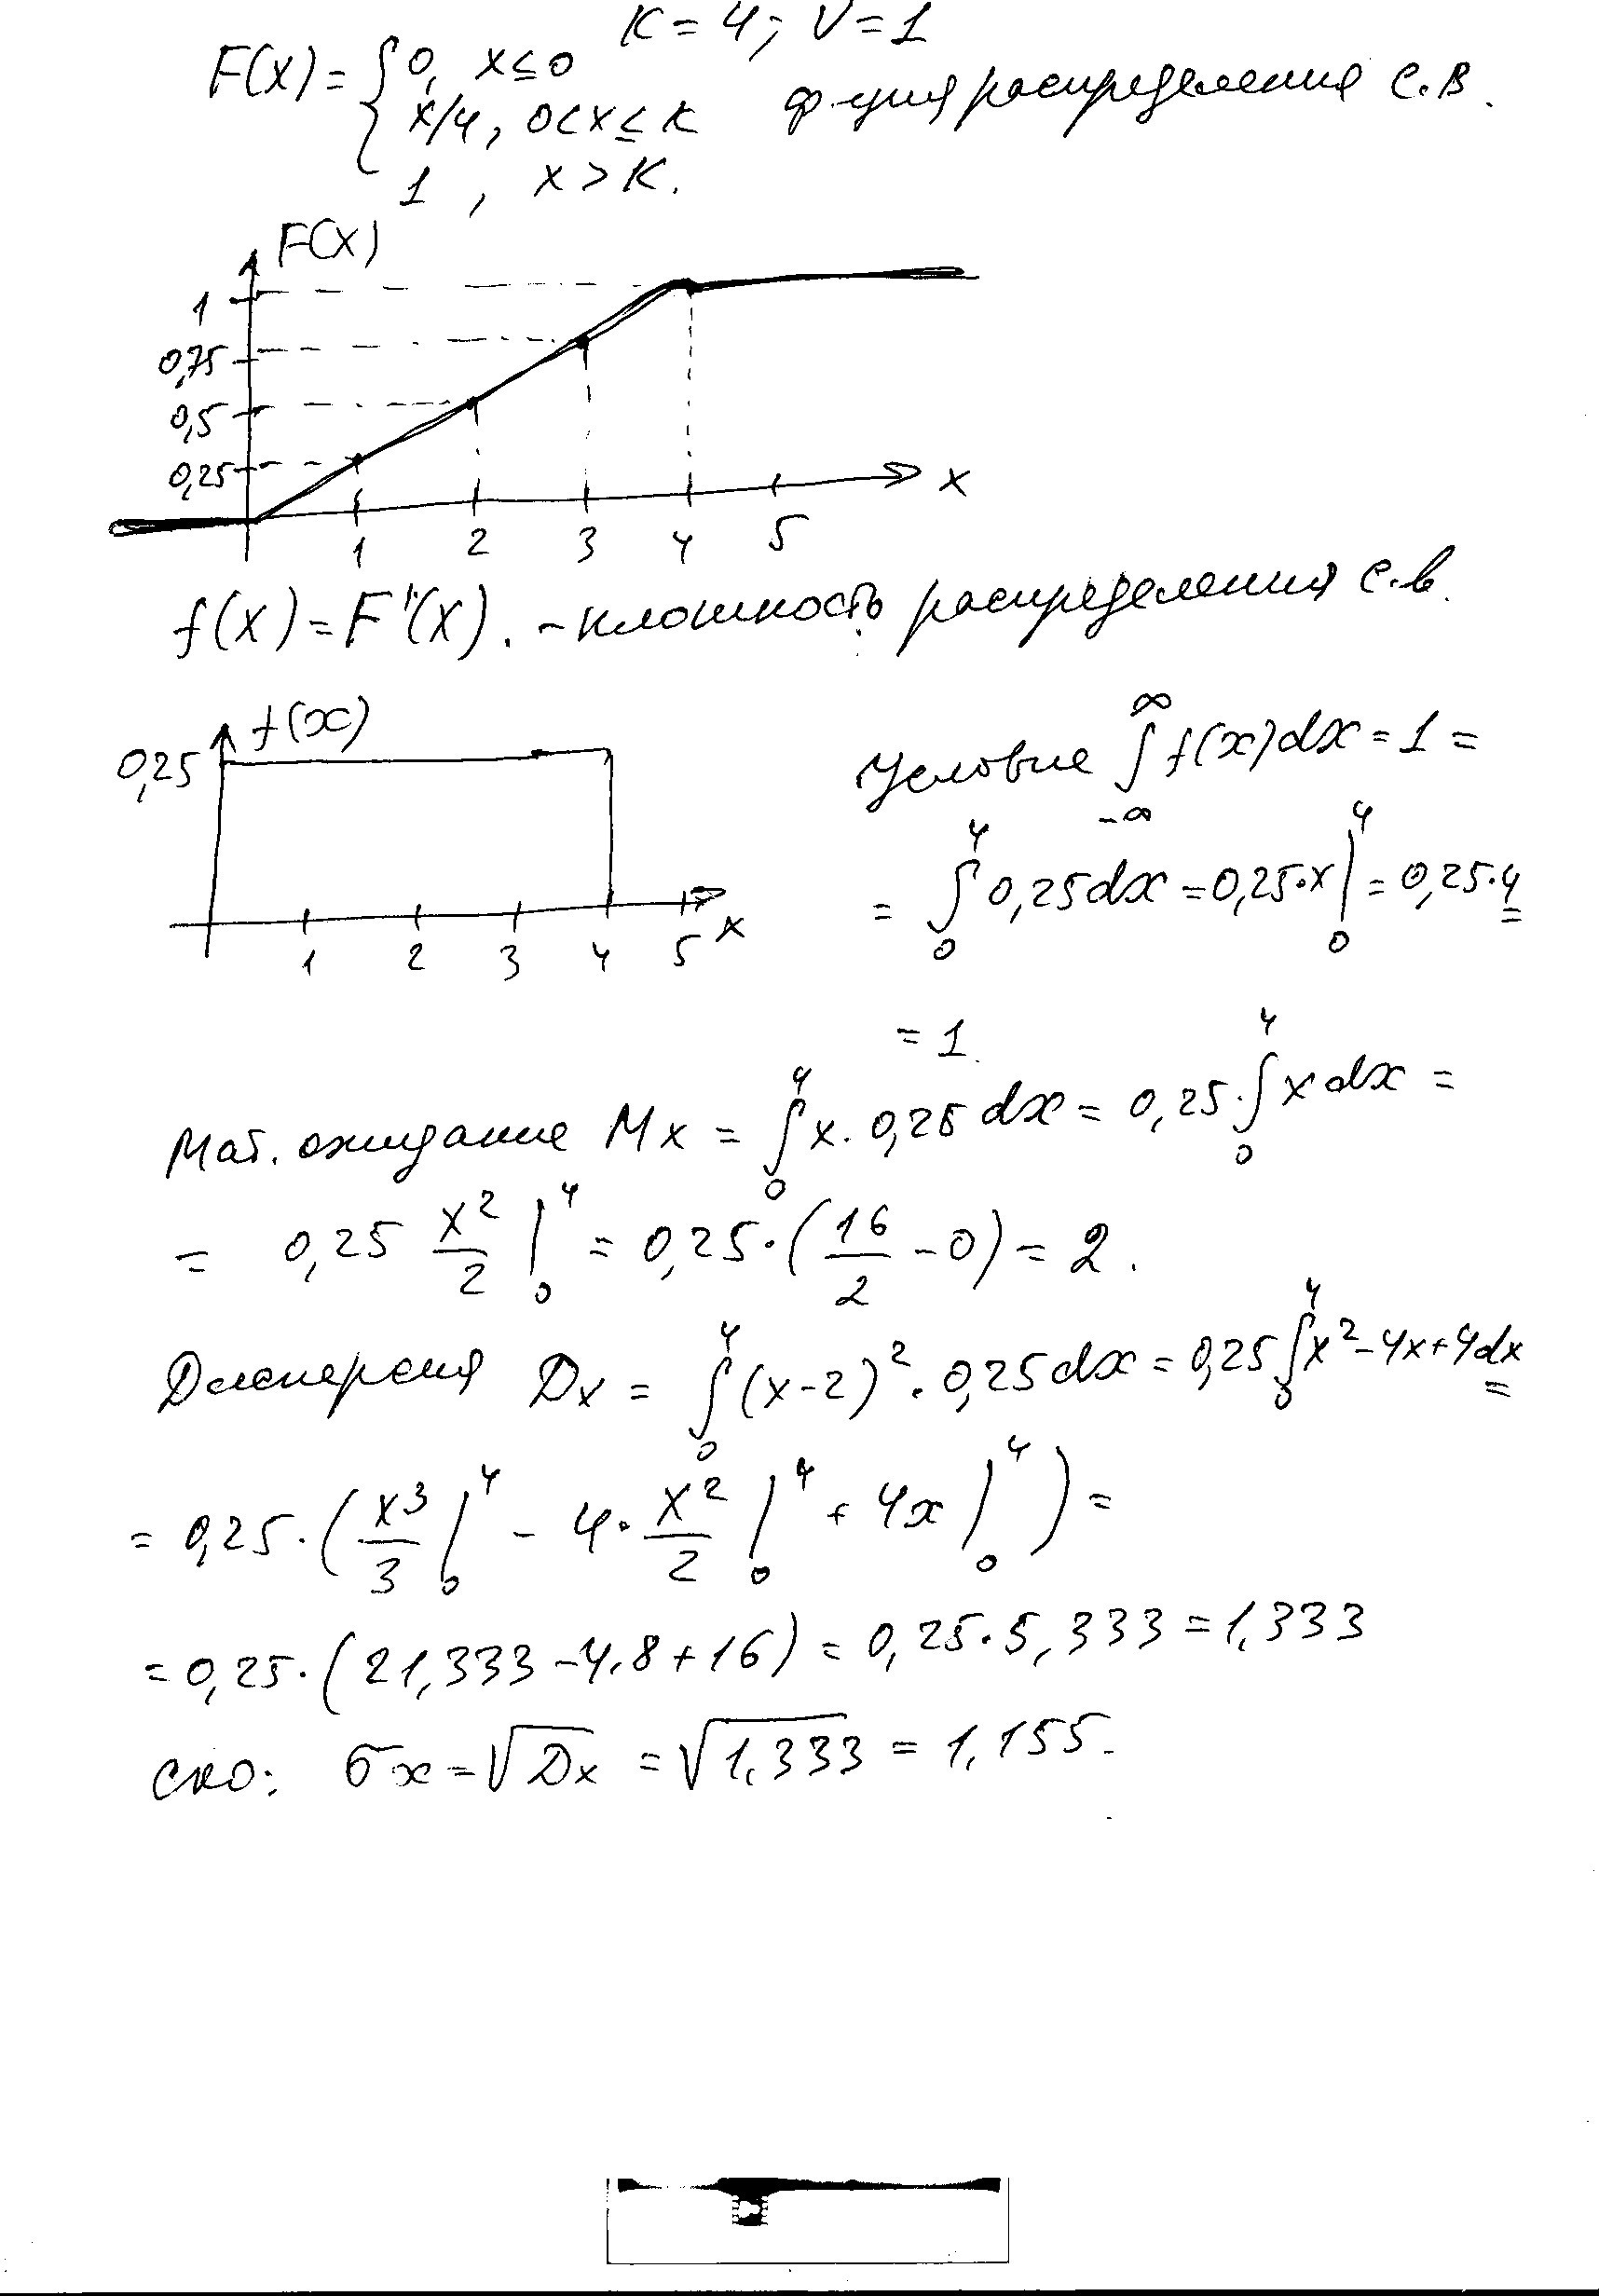 K = 4; V = 1
F(x) = { 0, x ≤ 0
x/4, 0 < x ≤ K ф-ция распределения с.в.
1, x > K.
F(x)
1
0,75
0,5
0,25
x
1 2 3 4 5
f(x) = F'(x). - плотность распределения с.в.
f(x)
0,25
x
1 2 3 4 5
Условие ∫_{-∞}^{∞} f(x)dx = 1 =
= ∫_0^4 0,25dx = 0,25·x |_0^4 = 0,25·4 =
= 1.
Мат. ожидание Mx = ∫_0^4 x·0,25 dx = 0,25·∫_0^4 x dx =
= 0,25 x²/2 |_0^4 = 0,25·(16/2 - 0) = 2.
Дисперсия Dx = ∫_0^4 (x-2)²·0,25dx = 0,25 ∫_0^4 x²-4x+4dx =
= 0,25·(x³/3 |_0^4 - 4·x²/2 |_0^4 + 4x |_0^4) =
= 0,25·(21,333-4·8+16) = 0,25·5,333 = 1,333
ско: σx = √Dx = √1,333 = 1,155.